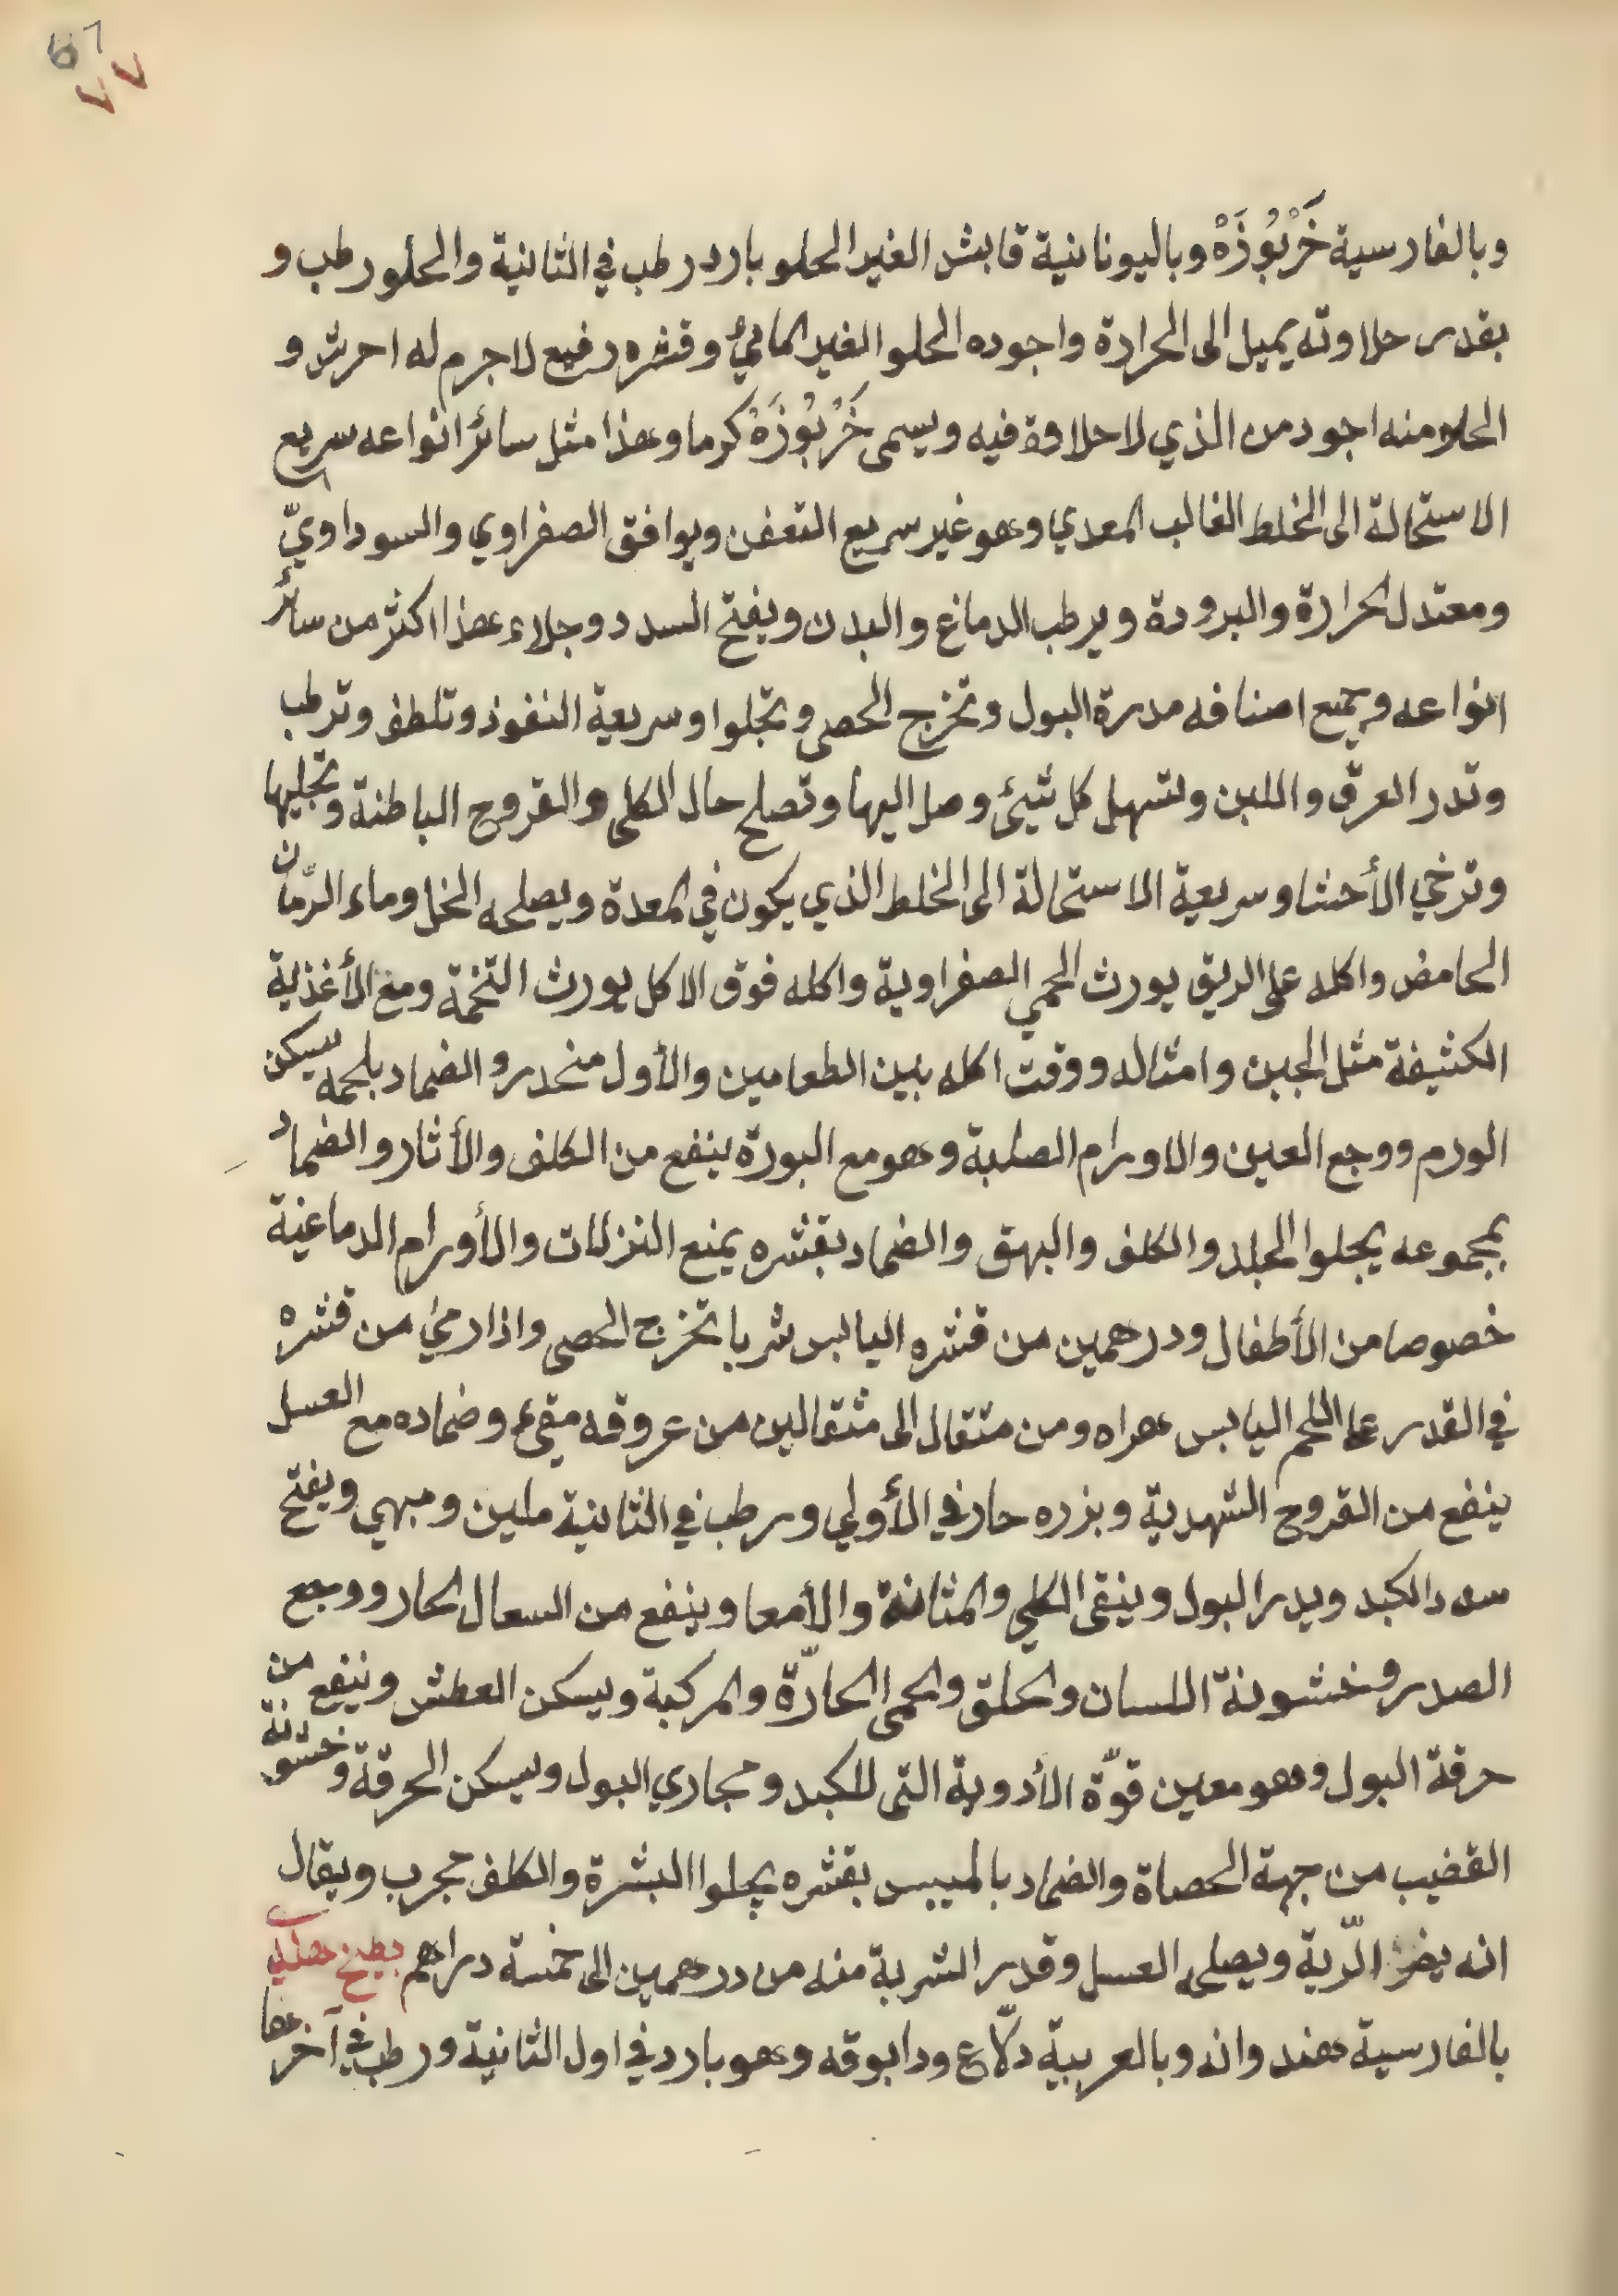 67
٧٧
وبالفارسية خَرْبُوزَهْ وباليونانية قابش الغير الحلو بارد رطب في الثانية والحلو رطب و
بقدر حلاوته يميل الى الحرارة واجوده الحلو الغير المائيّ وقشره رفيع لا جرم له احرش و
الحلو منه اجود من الذي لا حلاوة فيه ويسمى خَرْبُوزَهْ كرما وهذا مثل سائر انواعه سريع
الاستحالة الى الخلط الغالب المعدي وهو غير سريع التعفن ويوافق الصفراوي والسوداويّ
ومعتدل الحرارة والبرودة ويرطب الدماغ والبدن ويفتح السدد وجلاء هذا اكثر من سائر
انواعه وجميع اصنافه مدرة البول وتخرج الحصى وتجلوا وسريعة النفوذ وتلطف وترطب
وتدر العرق واللبن وتسهل كل شيئ وصل اليها وتصلح حال الكلى والقروح الباطنة وتجليها
وترخي الأحشا وسريعة الاستحالة الى الخلط الذي يكون في المعدة ويصلحه الخل وماء الرّمان
الحامض واكله على الريق يورث الحمي الصفراوية واكله فوق الاكل يورث التخمة ومع الأغذية
الكثيفة مثل الجبن وامثاله ووقت اكله بين الطعامين والأول منحدر والضماد بلحمه يسكن
الورم ووجع العين والاورام الصلبة وهو مع البورة ينفع من الكلف والأثار والضماد
بمجموعه يجلوا الجلد والكلف والبهق والضماد بقشره يمنع النزلات والأورام الدماغية
خصوصا من الأطفال ودرهمين من قشره اليابس شربا تخرج الحصى واذا رمي من قشره
في القدر على اللحم اليابس هراه ومن مثقال الى مثقالين من عروقه مقيء وضماده مع العسل
ينفع من القروح الشهدية وبزره حار في الأولي ورطب في الثانية ملين ومبهي ويفتح
سدد الكبد ويدر البول وينقى الكلي والمثانة والأمعا وينفع من السعال الحار ووجع
الصدر وخشونة اللسان والحلق والحمى الحارّة والمركبة ويسكن العطش وينفع من
حرقة البول وهو معين قوّة الأدوية التى للكبد ومجاري البول ويسكن الحرقة وخشونة
القضيب من جهة الحصاة والضماد بالمييس بقشره يجلوا البشرة والكلف مجرب ويقال
انه يضر الرّية ويصلحه العسل وقدر الشربة منه من درهمين الى خمسة دراهم بطيخ هندي
بالفارسية هندوانه وبالعربية دلّاع ودابوقه وهو بارد في اول الثانية ورطب في آخرها